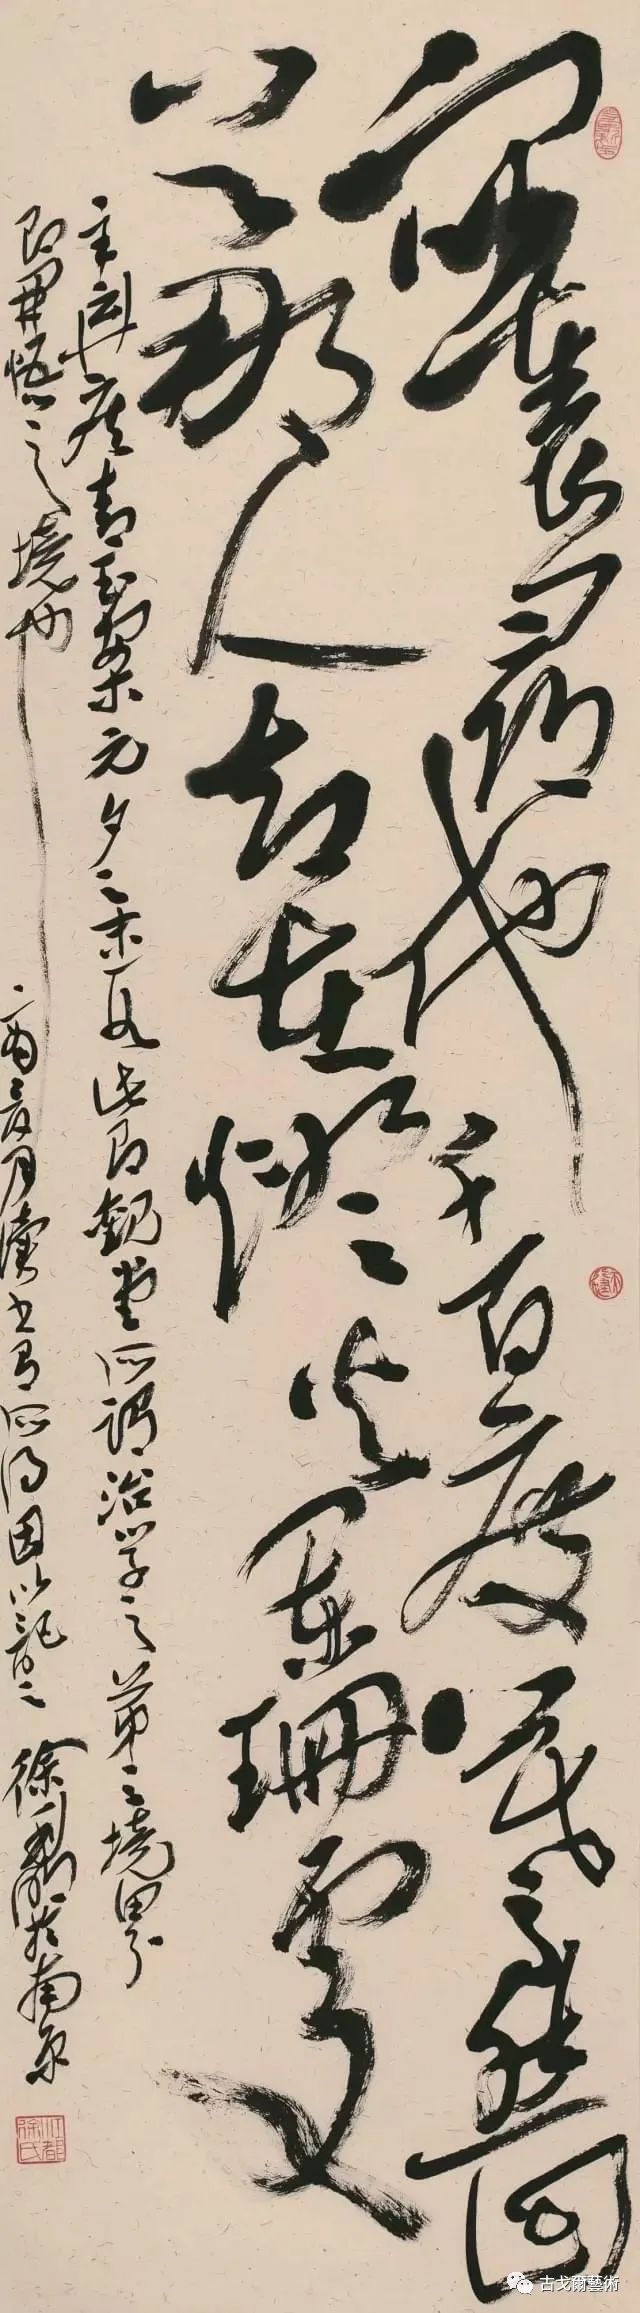 眾裏尋他千百度驀然回
首那人却在燈火闌珊處
辛棄疾青玉案元夕之末此即觀堂所謂治學之第三境界
即悟之境也 月讀書有所得因以記之 徐利明於南京
古戈爾藝術